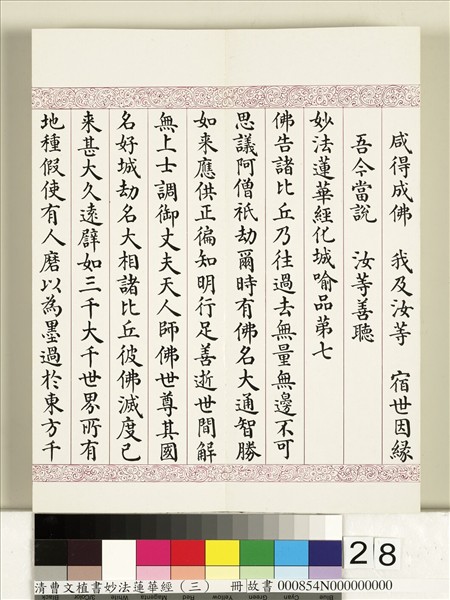 咸得成佛　我及汝等　宿世因緣
吾今當說　汝等善聽
妙法蓮華經化城喻品第七
佛告諸比丘乃往過去無量無邊不可
思議阿僧祇劫爾時有佛名大通智勝
如來應供正徧知明行足善逝世間解
無上士調御丈夫天人師佛世尊其國
名好城劫名大相諸比丘彼佛滅度已
來甚大久遠譬如三千大千世界所有
地種假使有人磨以為墨過於東方千
28
清曹文植書妙法蓮華經（三）　冊 故書 000854N000000000